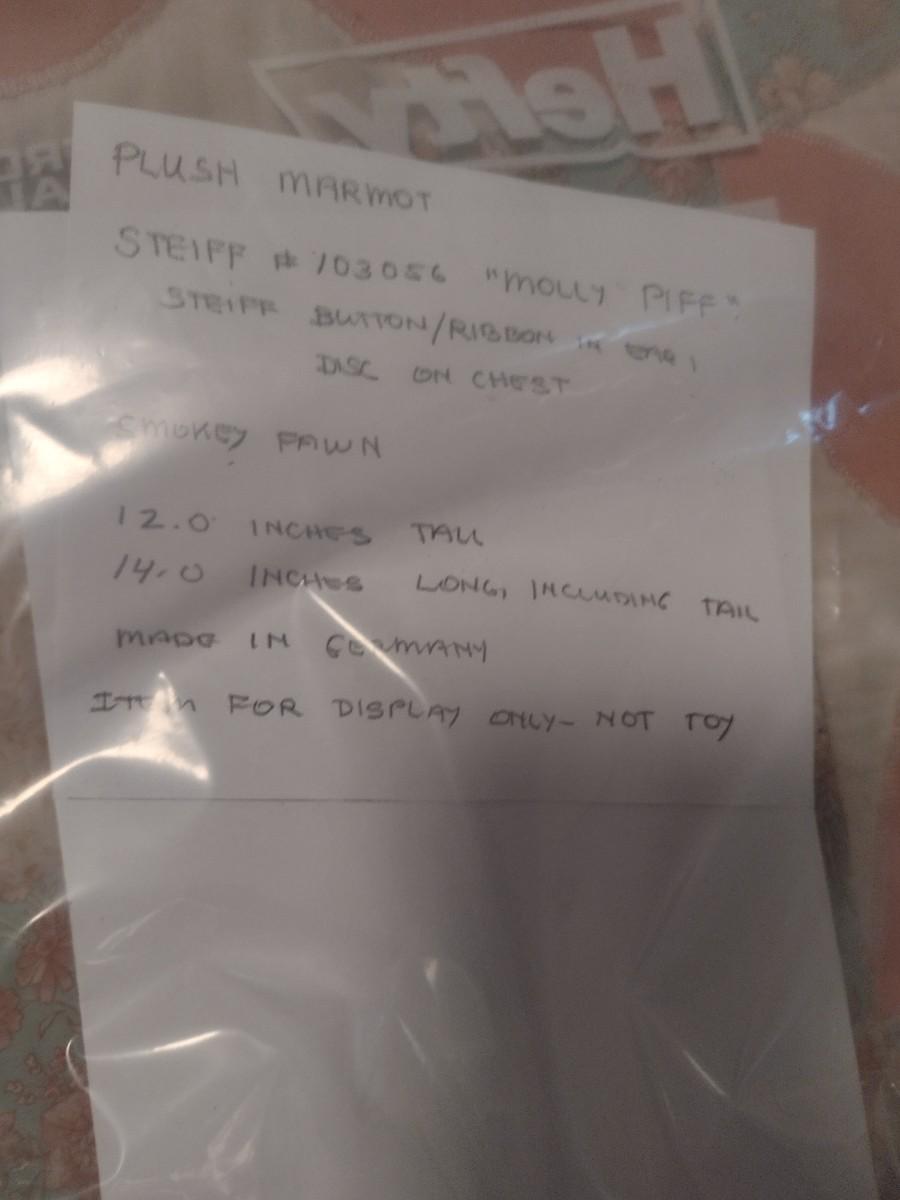 Hefty
PLUSH MARMOT
STEIFF # 103056 "MOLLY PIFF"
STEIFF BUTTON/RIBBON IN EAR,
DISC ON CHEST
SMOKEY FAWN
12.0 INCHES TALL
14.0 INCHES LONG, INCLUDING TAIL
MADE IN GERMANY
ITEM FOR DISPLAY ONLY- NOT TOY